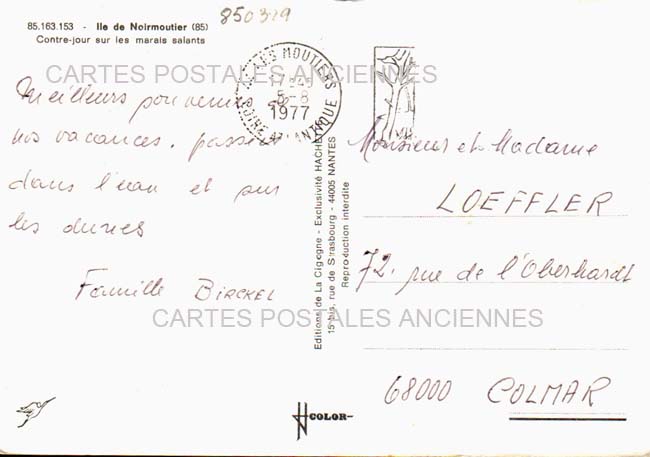 850329
85.163.153 - Ile de Noirmoutier (85)
Contre-jour sur les marais salants
MOUTIERS
17H45
5-8
1977
LOIRE ATLANTIQUE
CARTES POSTALES ANCIENNES
Meilleurs souvenirs de
nos vacances. passées
dans l'eau et sur
les dunes
Famille BIRCKEL
Editions de La Cigogne - Exclusivité HACHETTE
15 bis, rue de Strasbourg - 44005 NANTES
Reproduction interdite
Monsieur et Madame
LOEFFLER
72. rue de l'Oberhardt
CARTES POSTALES ANCIENNES
68000 COLMAR
COLOR